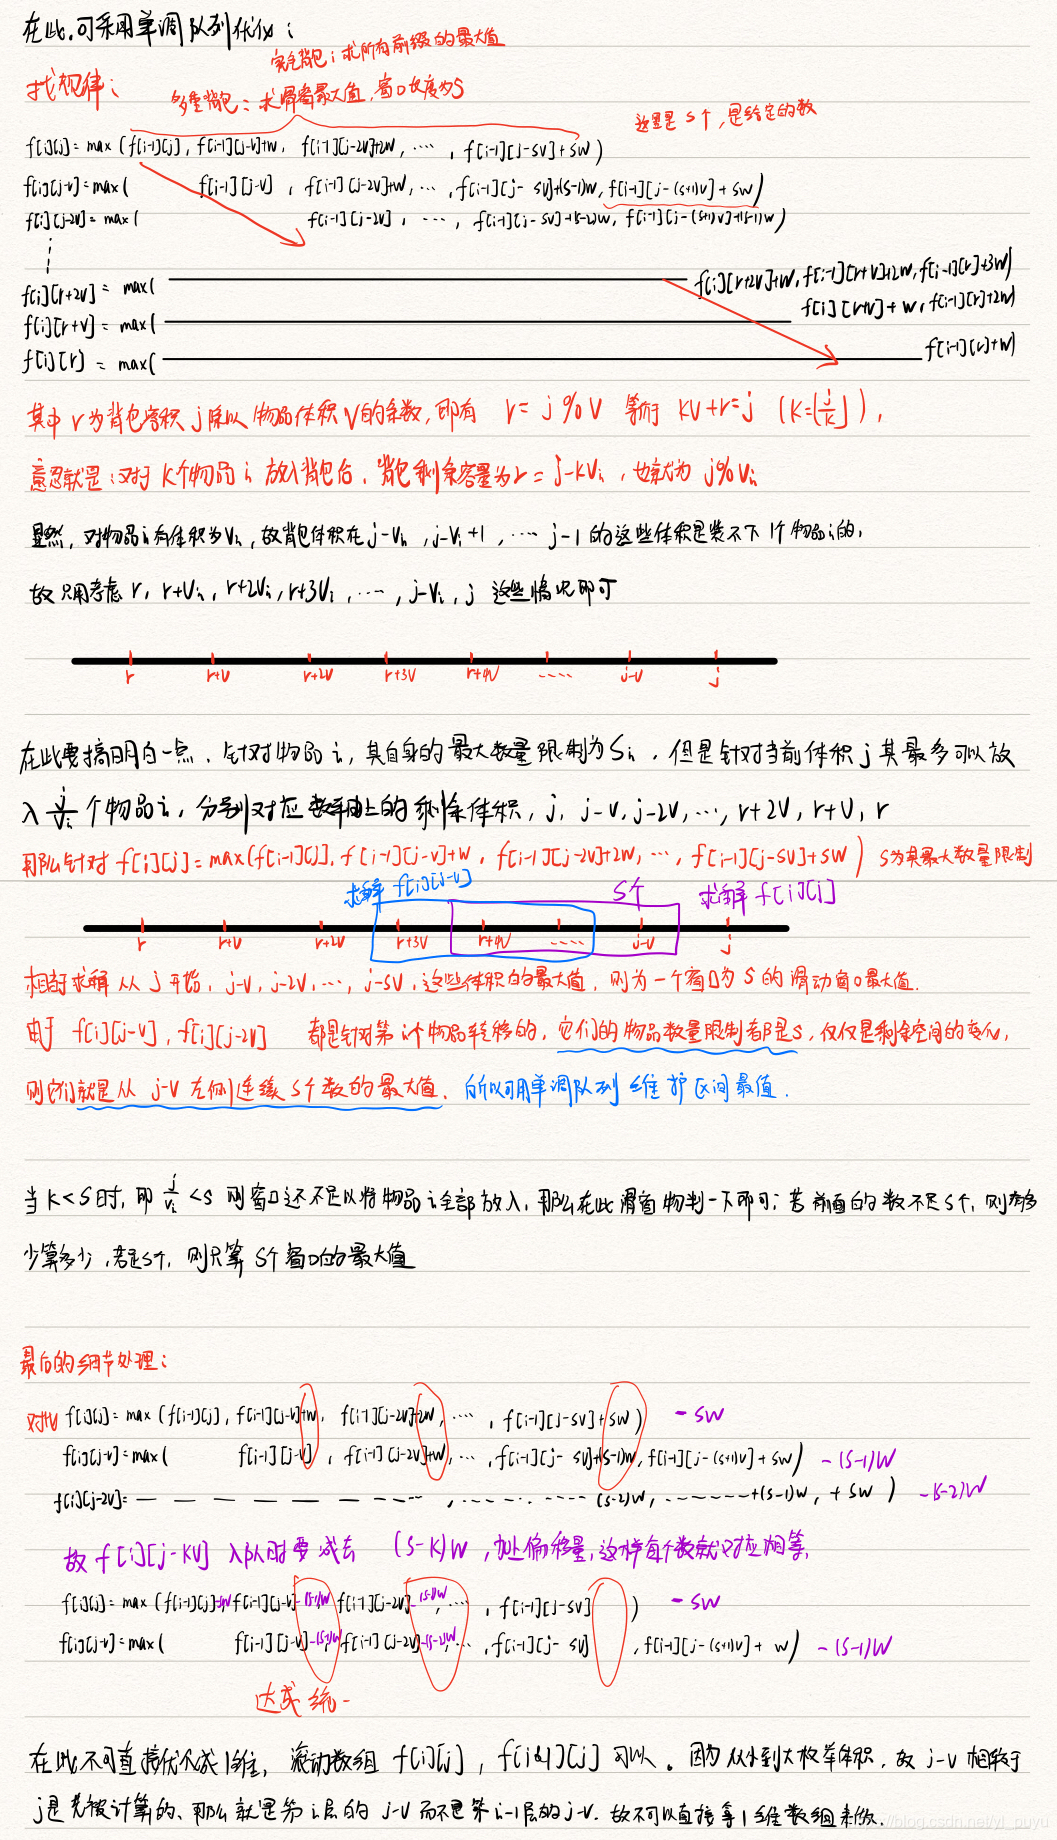 在此,可采用单调队列优化:
完全背包:求所有前缀的最大值
找规律:
多重背包:求滑窗最大值,窗口长度为S
这里是 S个,是给定的数
f[i][j] = max (f[i-1][j], f[i-1][j-v]+w, f[i-1][j-2v]+2w, ···, f[i-1][j-sv]+sw)
f[i][j-v] = max( f[i-1][j-v], f[i-1][j-2v]+w, ···, f[i-1][j-sv]+(s-1)w, f[i-1][j-(s+1)v]+sw)
f[i][j-2v] = max( f[i-1][j-2v], ···, f[i-1][j-sv]+(s-2)w, f[i-1][j-(s+1)v]+(s-1)w)
f[i][r+2v] = max( f[i][r+2v]+w, f[i-1][r+v]+2w, f[i-1][r]+3w)
f[i][r+v] = max( f[i][r+v]+w, f[i-1][r]+2w)
f[i][r] = max( f[i-1][r]+w)
其中 r为背包容积 j除以物品体积V的余数,即有 r= j%V 等于 kv+r=j (k=⌊j/k⌋),
意思就是:对于 k个物品 i 放入背包后,背包剩余容量为r= j-kVi,也就为 j%Vi
显然,对物品i有体积为Vi,故背包体积在j-Vi, j-Vi+1, ···· j-1 的这些体积是装不下1个物品i的,
故只用考虑 r, r+Vi, r+2Vi, r+3Vi, ···, j-Vi, j 这些情况即可
r r+v r+2v r+3v r+4v ···· j-v j
在此要搞明白一点、针对物品 i,其自身的最大数量限制为Si,但是针对当前体积 j 其最多可以放
入 j/vi 个物品i,分别对应数轴上的剩余体积,j, j-v, j-2v, ···, r+2v, r+v, r
那么针对 f[i][j] = max(f[i-1][j], f[i-1][j-v]+w, f[i-1][j-2v]+2w, ···, f[i-1][j-sv]+sw) S为其最大数量限制
求解 f[i][j-v] S个 求解 f[i][j]
r r+v r+2v r+3v r+4v ···· j-v j
相当求解 从 j 开始,j-v, j-2v, ···, j-sv,这些体积的最大值,则为一个窗口为 S 的滑动窗口最大值.
由于 f[i][j-v], f[i][j-2v] 都是针对第 i个物品转移的,它们的物品数量限制都是S,仅仅是剩余空间的变化,
则它们就是从 j-v 左侧连续 S个数的最大值. 所以可用单调队列维护区间最值.
当 k<S时,即 j/vi <s 则窗口还不足以将物品i全部放入,那么在此滑窗物判一下即可:若前面的数不足S个,则有多
少算多少,若足S个,则只算 S个窗口的最大值
最后的细节处理:
对于 f[i][j] = max (f[i-1][j], f[i-1][j-v]+w, f[i-1][j-2v]+2w, ···, f[i-1][j-sv]+sw) - sw
f[i][j-v] = max( f[i-1][j-v], f[i-1][j-2v]+w, ···, f[i-1][j-sv]+(s-1)w, f[i-1][j-(s+1)v]+sw) -(s-1)w
f[i][j-2v] = — — — — — — ····, ···· ···· (s-2)w, ······+(s-1)w, +sw) -(s-2)w
故 f[i][j-kv] 入队时要减去 (s-k)w,加上偏移量,这样每个数就对应相等.
f[i][j] = max (f[i-1][j]-sw, f[i-1][j-v]-(s-1)w, f[i-1][j-2v]-(s-2)w, ···, f[i-1][j-sv] ) - sw
f[i][j-v] = max( f[i-1][j-v]-(s-1)w, f[i-1][j-2v]-(s-2)w, ···, f[i-1][j-sv], f[i-1][j-(s+1)v]+w) -(s-1)w
达成统一
在此不可直接优化成1维,滚动数组 f[i][j], f[i&1][j] 可以。因为从小到大枚举体积,故 j-v 相较于
j是先被计算的、那么就是第 i层的 j-v 而不是第i-1层的j-v. 故不可以直接拿1维数组来做.